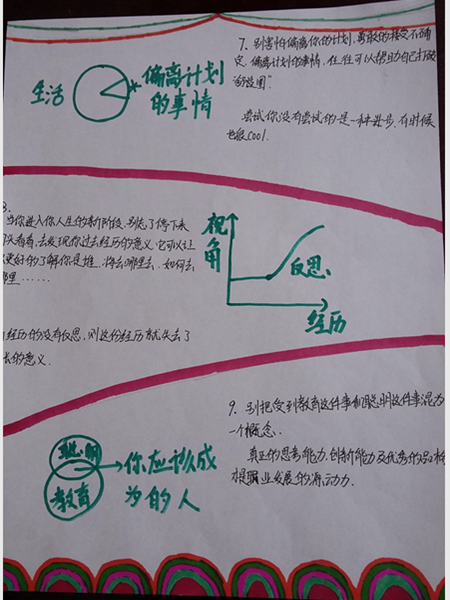 7. 别害怕偏离你的计划,勇敢的接受不确
定,偏离计划的事情,往往可以帮助自己打破
"
尝试你没有尝试的是一种进步,有时候
也很cool.
生活
偏离计划
的事情
8.
当你进入你人生的新阶段,别忘了停下来
回头看看,去发现你过去经历的意义,它可以让
你更好的了解你是谁,将去哪里去,如何去
那里……
经历的没有反思,则这份经历就失去了
长的意义.
视角
反思
经历
9. 别把受到教育这件事和聪明这件事混为
一个概念.
真正的思考能力,创新能力及优秀的品格
根职业发展的源动力.
聪明
教育
你应该成
为的人